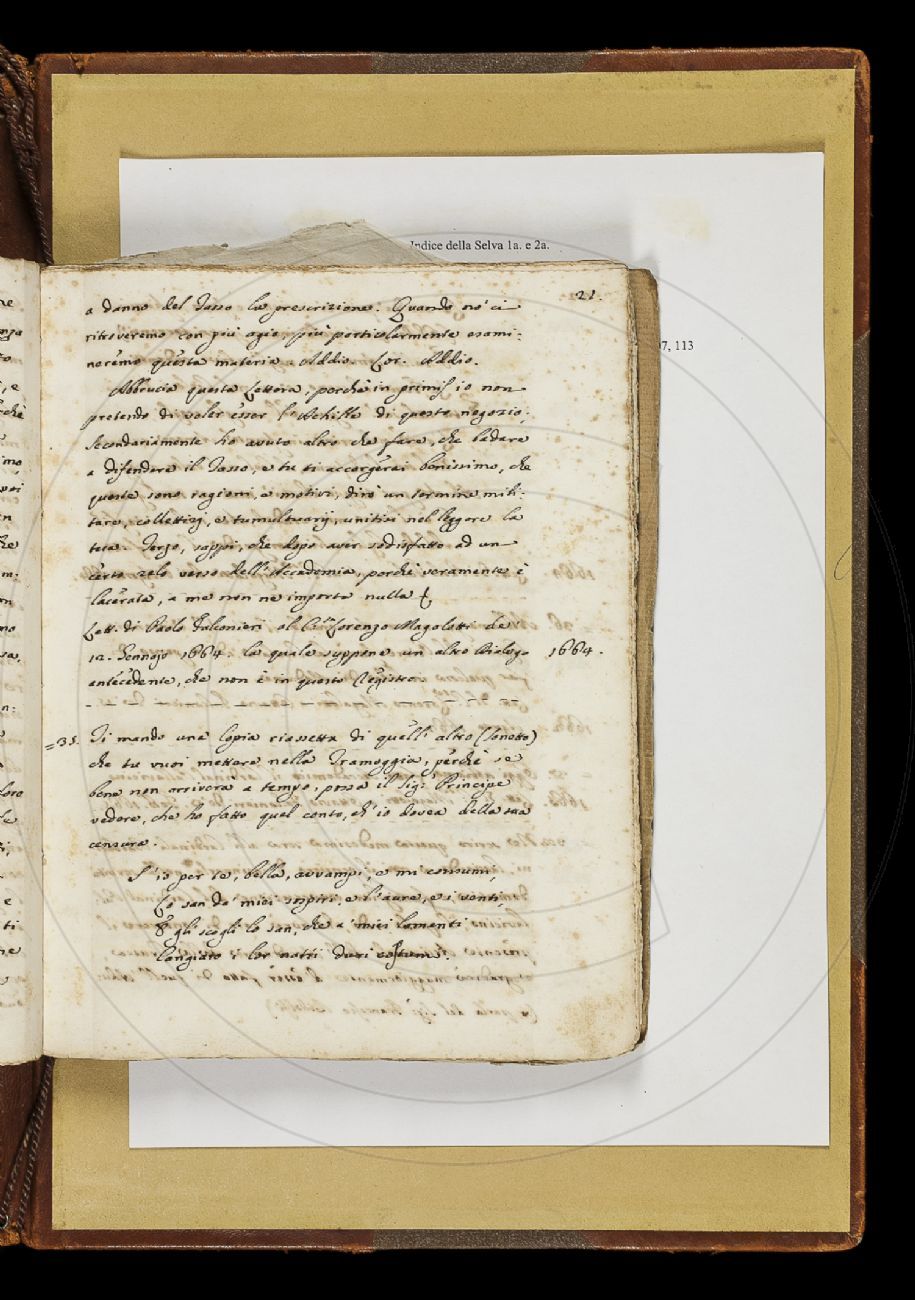 Indice della Selva 1a. e 2a.
7, 113
21.
a danno del Tasso la prescrizione. Quando nõ ci
ritroveremo con più agio, più particolarmente esami-
noremo questa materia. Addio. Cor. Addio.
Abbrucia questa lettera, perchè in primis io non
pretendo di voler esser l'Achille di questo negozio;
secondariamente ho avuto altro che fare, che badare
a difendere il Tasso, e tu ti accorgerai benissimo, che
queste sono ragioni, e motivi, dirò un termine mili-
tare, collettizj, e tumultuarij, unitisi nel leggere la
tua. Terzo, sappi, che dopo aver sodisfatto ad un
certo zelo verso dell'Accademia, perchè veramente è
lacerata, a me non ne importa nulla
Lett. di Paolo Falconieri al Lorenzo Magalotti de
12. Gennajo 1664. la quale suppone un altro Dialogo
1664.
antecedente, che non è in questo Registro.
=35. Ti mando una Copia riassetta di quell'altro (Sonetto)
che tu vuoi mettere nella Tramoggia, perchè se
bene non arriverà a tempo, possa il Sig. Principe
vedere, che ho fatto quel conto, ch'io dovea della sua
censura.
S'io per te, bella, avvampi, e mi consumi,
Lo san de' miei sospiri, e l'aure, e i venti,
E gli scogli lo san, che a' miei lamenti
Cangiaro i lor natii duri costumi.